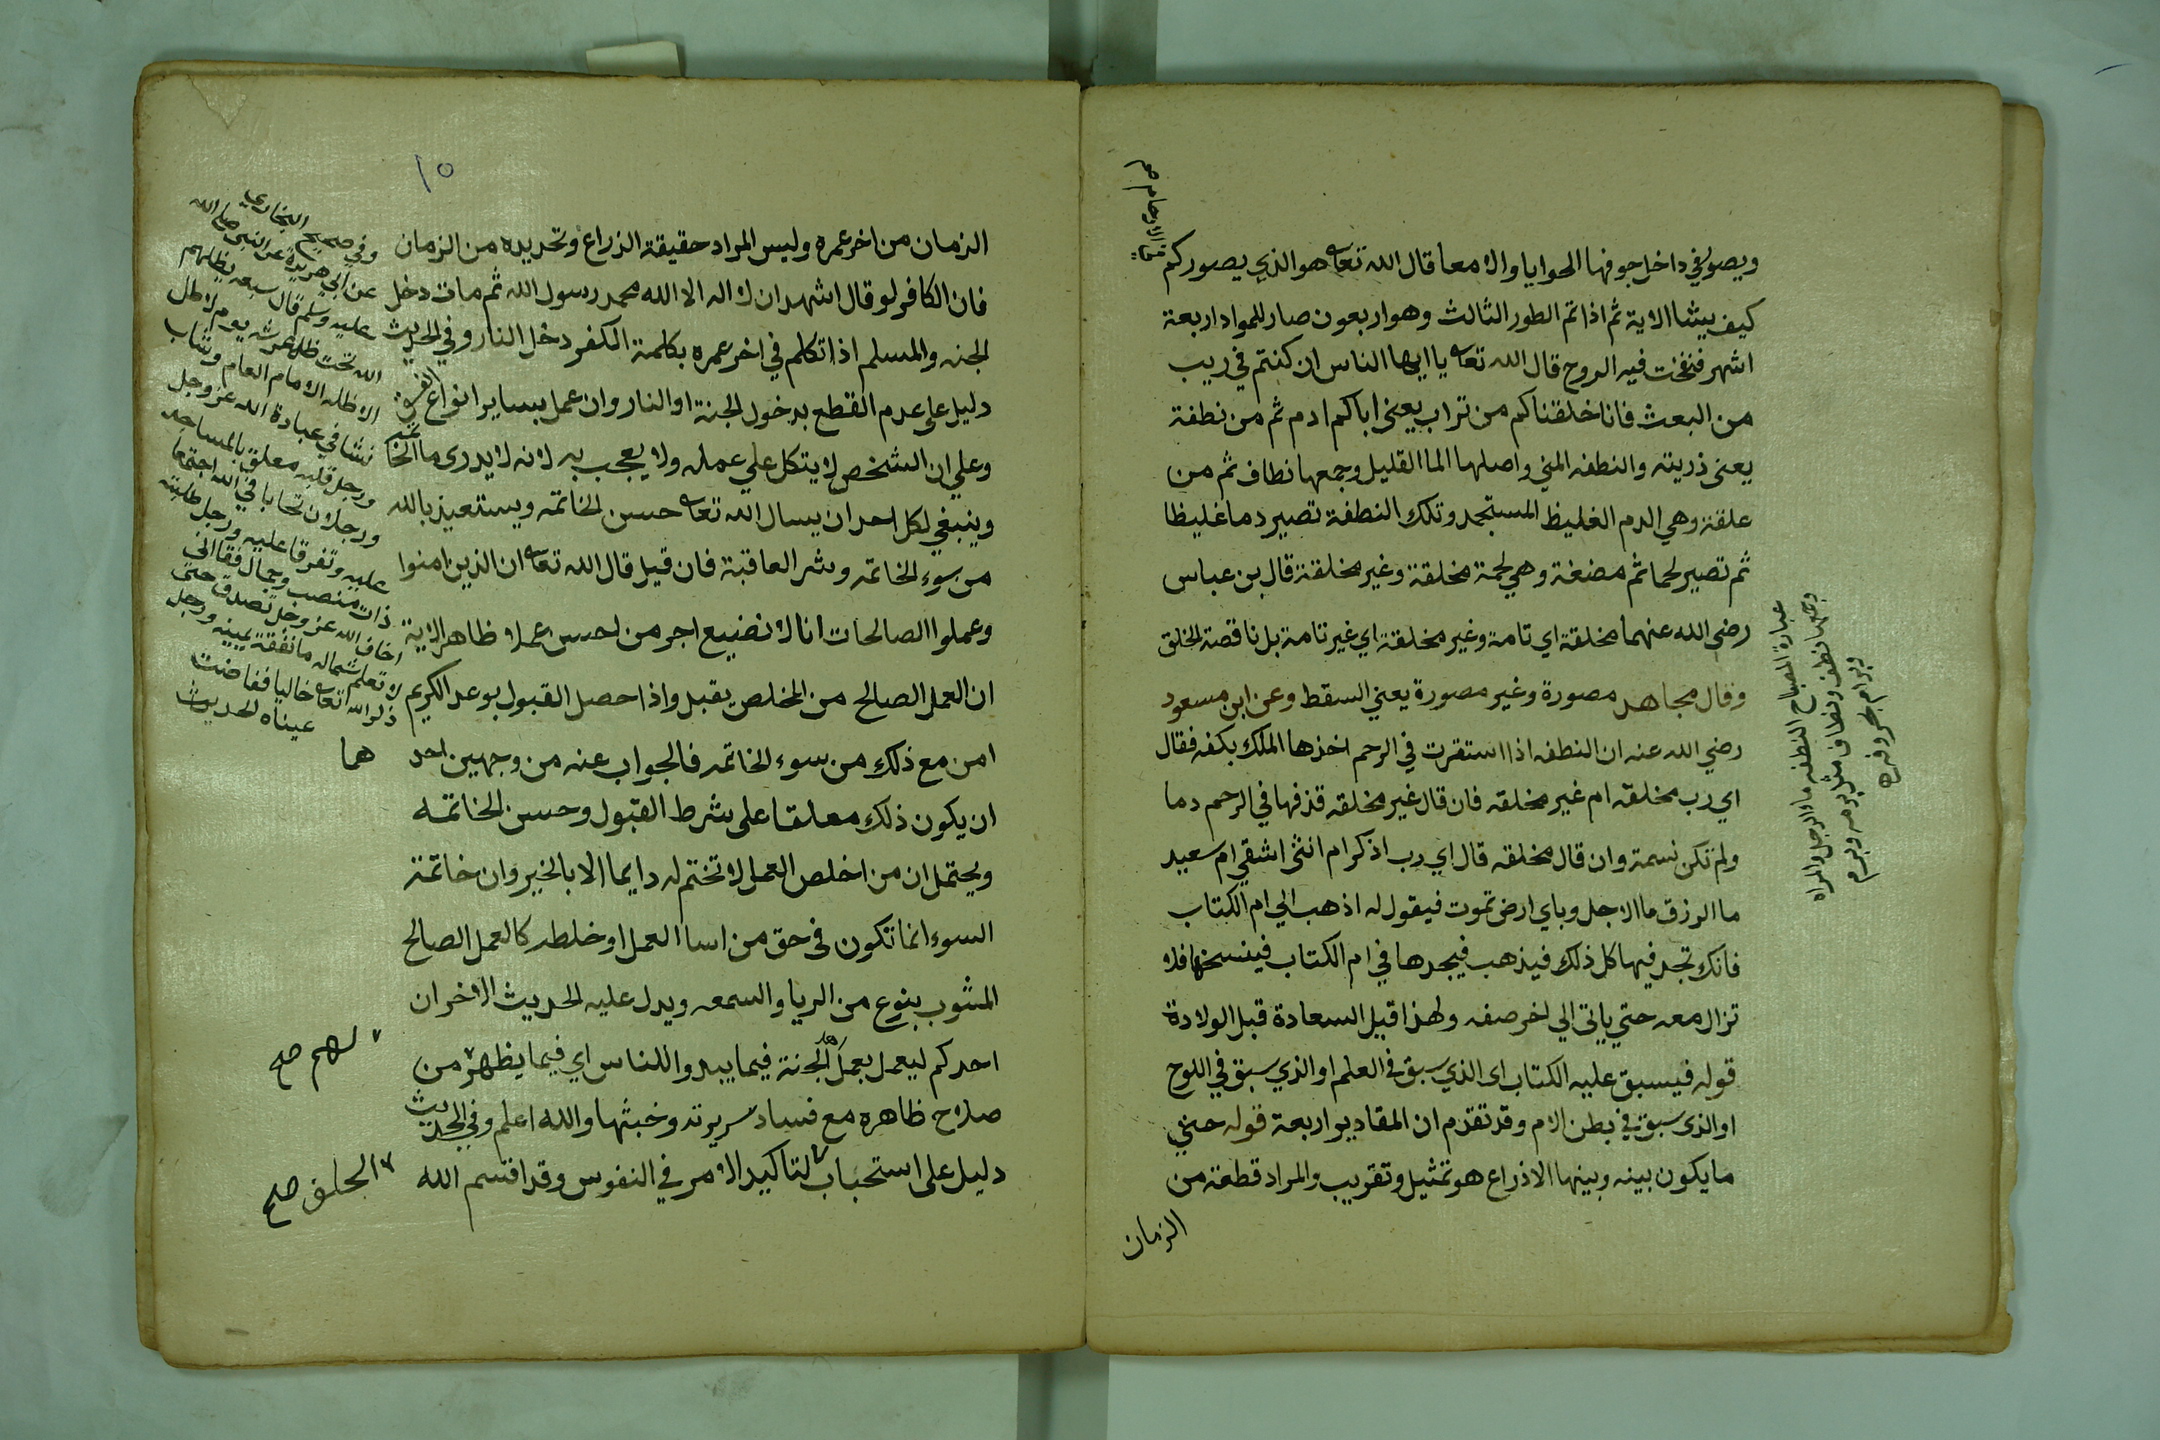 ويصور في داخل جوفها الحوايا والامعا قال الله تعا هو الذي يصوركم
في الارحام صح
كيف يشا الاية ثم اذا تم الطور الثالث وهو اربعون صار للمولد اربعة
اشهر فنفخت فيه الروح قال الله تعا يا ايها الناس ان كنتم في ريب
من البعث فانا خلقناكم من تراب يعني اباكم ادم ثم من نطفة
يعني ذريته والنطفه المني واصلها الما القليل وجمعها نطاف ثم من
علقة وهي الدم الغليظ المستجمد وتلك النطفة تصير دما غليظا
ثم تصير لحما ثم مضغة وهي لحمة مخلقة وغير مخلقة قال بن عباس
رضي الله عنهما مخلقة اي تامة وغير مخلقة اي غير تامة بل ناقصة الخلق
وقال مجاهد مصورة وغير مصورة يعني السقط وعن ابن مسعود
رضي الله عنه ان النطفه اذا استقرت في الرحم اخذها الملك بكفه فقال
اي رب مخلقه ام غير مخلقه فان قال غير مخلقه قذفها في الرحم دما
ولم تكن نسمة وان قال مخلقه قال اي رب اذكر ام انثى اشقي ام سعيد
ما الرزق ما الاجل وباي ارض تموت فيقول له اذهب الي ام الكتاب
فانك تجد فيها كل ذلك فيذهب فيجدها في ام الكتاب فينسخها فلا
تزال معه حتي ياتي الي اخر صفه ولهذا قيل السعادة قبل الولادة
قوله فيسبق عليه الكتاب اى الذي سبق في العلم او الذي سبق في اللوح
او الذى سبق في بطن الام وقد تقدم ان المقادير اربعة قوله حتي
ما يكون بينه وبينها الا ذراع هو تمثيل وتقريب والمراد قطعة من
الزمان
عبارة المصباح النطفه ماء الرجل والمراه
وجمعها نطف ونطاف مثل برمه وبرم
وبرام بحروفه
١٥
الزمان من اخر عمره وليس المراد حقيقة الذراع وتحديده من الزمان
فان الكافر لو قال اشهد ان لا اله الا الله محمد رسول الله ثم مات دخل
الجنه والمسلم اذا تكلم في اخر عمره بكلمة الكفر دخل النار وفي الحديث
دليل على عدم القطع بدخول الجنة او النار وان عمل بساير انواع
وعلي ان الشخص لا يتكل علي عمله ولا يعجب به لانه لا يدرى ما الخاتمه
وينبغي لكل احد ان يسال الله تعا حسن الخاتمه ويستعيذ بالله
من سوء الخاتمه وشر العاقبة فان قيل قال الله تعا ان الذين امنوا
وعملوا الصالحات انا لا نضيع اجر من احسن عملا ظاهر الاية
ان العمل الصالح من المخلص يقبل واذا حصل القبول بوعد الكريم
امن مع ذلك من سوء الخاتمه فالجواب عنه من وجهين احد هما
ان يكون ذلك معلقا على شرط القبول وحسن الخاتمه
ويحتمل ان من اخلص العمل لا تختم له دايما الا بالخير وان خاتمة
السوء انما تكون في حق من اسا العمل او خلطه كالعمل الصالح
المشوب بنوع من الريا والسمعه ويدل عليه الحديث الاخر ان
احدكم ليعمل بعمل اهل الجنة فيما يبدو اللناس اي فيما يظهر من
لهم صح
صلاح ظاهره مع فساد سريرته وخبثها والله اعلم وفي الحديث
دليل على استحباب لتاكيد الامر في النفوس وقد اقسم الله
الحلف صح
وفي صحيح البخاري
عن ابي هريرة عن النبي صلى الله
عليه وسلم قال سبعه يظلهم
الله تحت ظل عرشه يوم لا ظل
الا ظله الامام العام وشاب
نشا في عبادة الله عز وجل
ورجل قلبه معلق بالمساجد
ورجلان تحابا في الله اجتمعا
عليه وتفرقا عليه ورجل طلبته
ذات منصب وجمال فقال اني
اخاف الله عز وجل تصدق حتى
لا تعلم شماله ما تنفقة يمينه ورجل
ذكر الله تعا خاليا ففاضت
عيناه الحديث